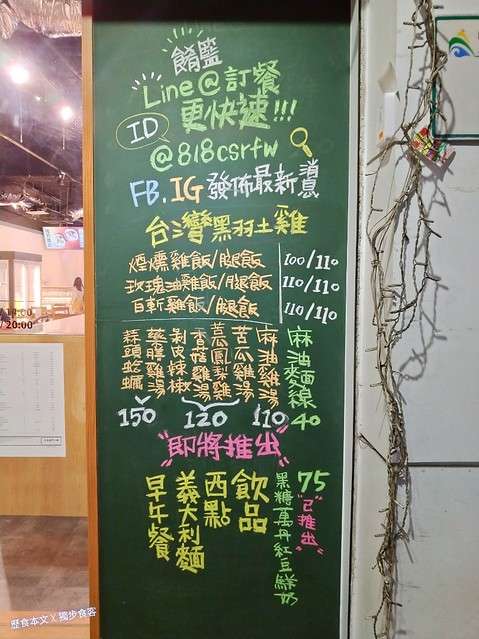 餚藍
Line@訂餐
更快速!!!
ID
@818csrfw
FB.IG 發佈最新消息
台灣黑羽土雞
煙燻雞飯/腿飯 100/110
玫瑰油雞飯/腿飯 110/110
白斬雞飯/腿飯 110/110
麻油麵線
40
麻油雞湯
110
苦瓜雞湯
苦瓜鳳梨雞湯
香菇雞湯
剝皮辣椒
120
藥膳雞湯
蒜頭蛤蠣
150
"即將推出"
75
"已推出"
黑糖萬丹紅豆鮮奶
飲品
西點
義大利麵
早午餐
20:00
歷食本文 X 獨步食客